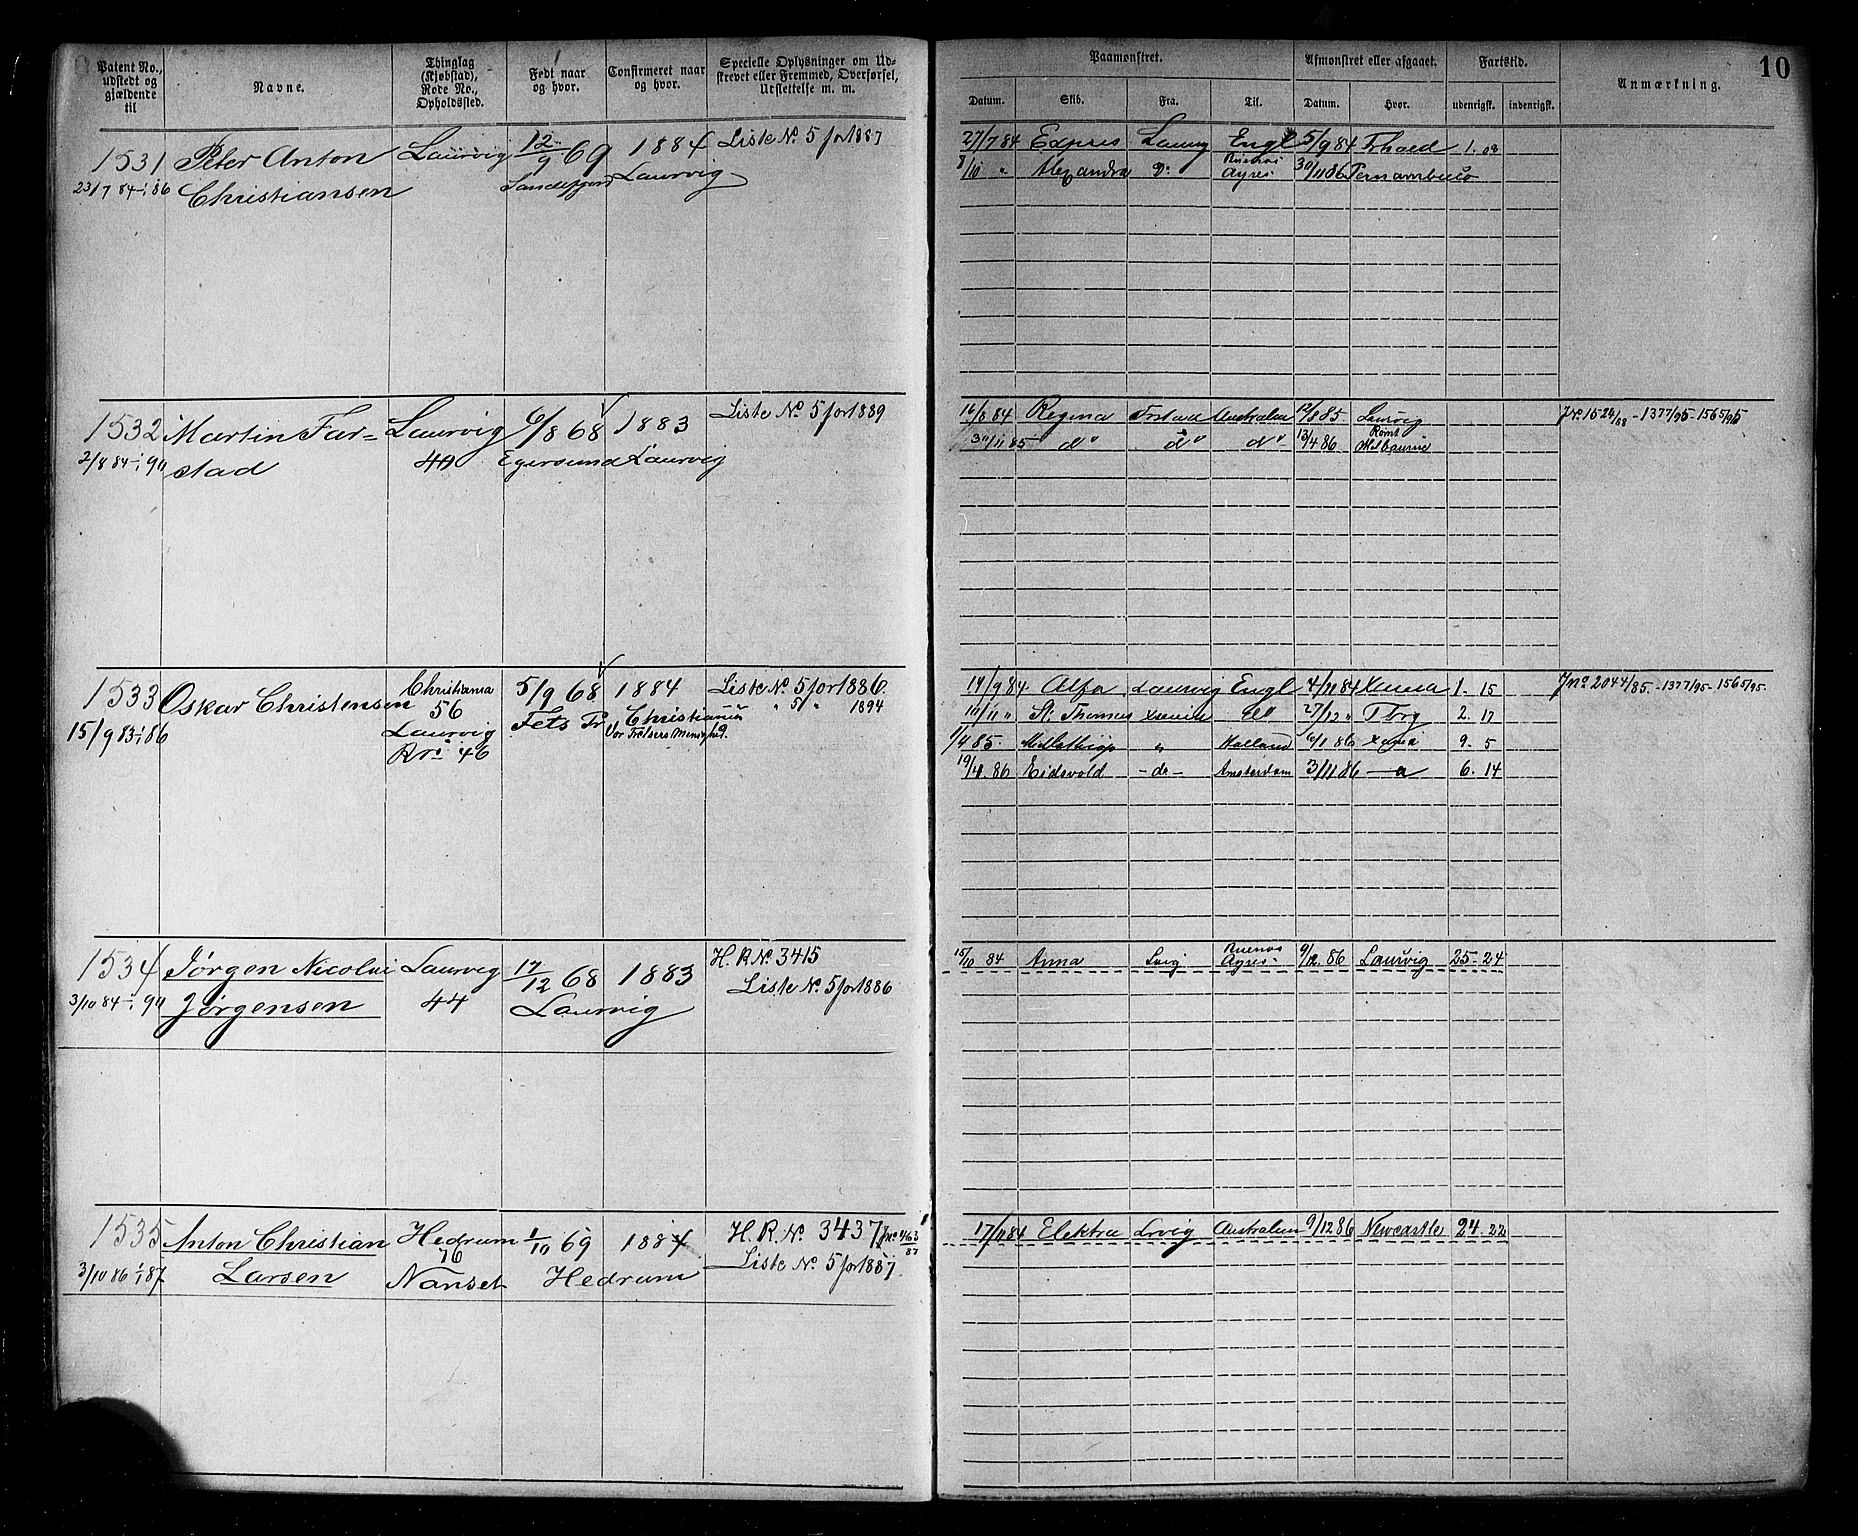 Patent No., udstedt og gjældende til
Navne.
Thinglag (Kjøbstad), Rode No., Opholdssted.
Født naar og hvor.
Confirmeret naar og hvor.
Specielle Oplysninger om Udskrevet eller Fremmed, Overførsel, Udslettelse m. m.
Paamønstret.
Afmønstret eller afgaaet.
Fartstid.
Anmærkning.
10
Datum. Skib. Fra. Til. Datum. Hvor. udenrigsk. indenrigsk.
1531 Peter Anton Laurvig 12/9 69 1884 Liste No. 5 for 1887
23/7 84 - 1/1 86 Christiansen Sandefjord Laurvig
27/7 84 Expres Laurvig Engl 5/9 84 1.08
8/10 " Alexandra Do Buenos Ayres 30/11 86 Pernambuco
1532 Martin Far= Laurvig 6/8 68 1883 Liste No. 5 for 1889
2/8 84 - 1/1 90 stad 40 Egersund Laurvig
16/8 84 Regina Australien Laurvig
30/11 85 do do do 13/4 86 Rømt Melbourne
1533 Oskar Christensen Christiania 5/9 68 1884 Liste No. 5 for 1886.
56 " 5 " 1894
15/9 83 - 1/1 86 Laurvig Fets Pr Christiania
R No 46 Vor Frelsers Menighed.
14/9 84 Alfa Laurvig Engl 4/11 84 1. 15 Jno 2044/85. - 1377/95 - 1565/95.
10/11 " St. Thomas 27/12 " 2. 17
1/4 85. " Holland 6/1 86 9. 5
19/4 86 Eidsvold - do - Amsterdam 3/11 86 6. 14
1534 Jørgen Nicolai Laurvig 17/12 68 1883 H. R. No. 3415
3/10 84 - 1/1 90 Jørgensen 44 Laurvig Liste No. 5 for 1886
15/10 84 Anna Lvig Buenos Ayres 9/12 86 Laurvig 25. 24
1535 Anton Christian Hedrum 1/10 69 1884 H. R. No. 3437
76
3/10 86 - 1/1 87 Larsen Nanset Hedrum Liste No. 5 for 1887.
17/11 84 Elektra Lrvig Australien 9/12 86 Newcastle 24. 22